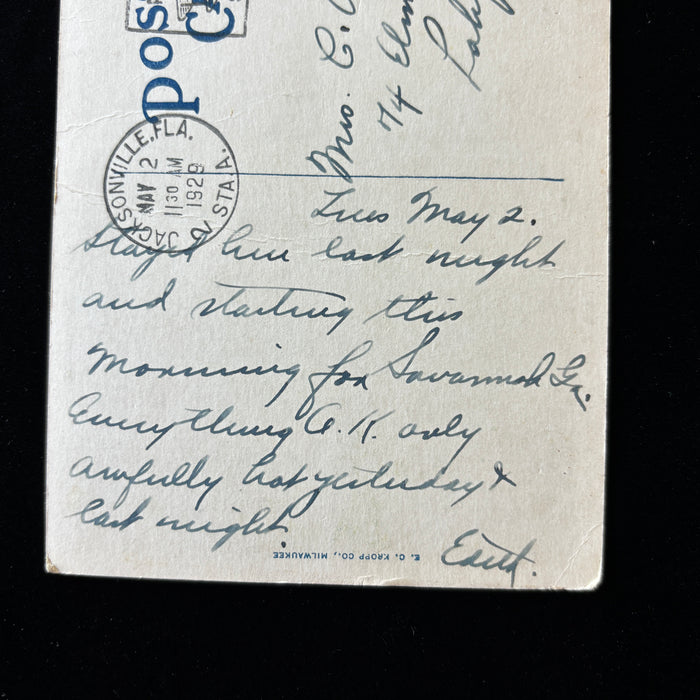 POS
C
JACKSONVILLE, FLA.
MAY 2
11 30 AM
1929
STA. A.
Mrs. C.
74 Elm
Tues May 2.
Stayed here last night
and starting this
Morning for Savannah Ga.
Everything O.K. only
awfully hot yesterday &
last night.
Edith.
E. C. KROPP CO., MILWAUKEE